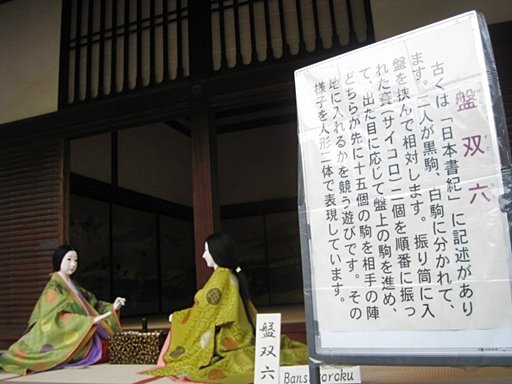 盤双六
古くは「日本書紀」に記述があり
ます。二人が黒駒、白駒に分かれて、
盤を挟んで相対します。振り筒に入
れた賽（サイコロ）二個を順番に振っ
て、出た目に応じて盤上の駒を進め、
どちらが先に十五個の駒を相手の陣
地に入れるかを競う遊びです。その
様子を人形二体で表現しています。
盤双六
Bans oroku